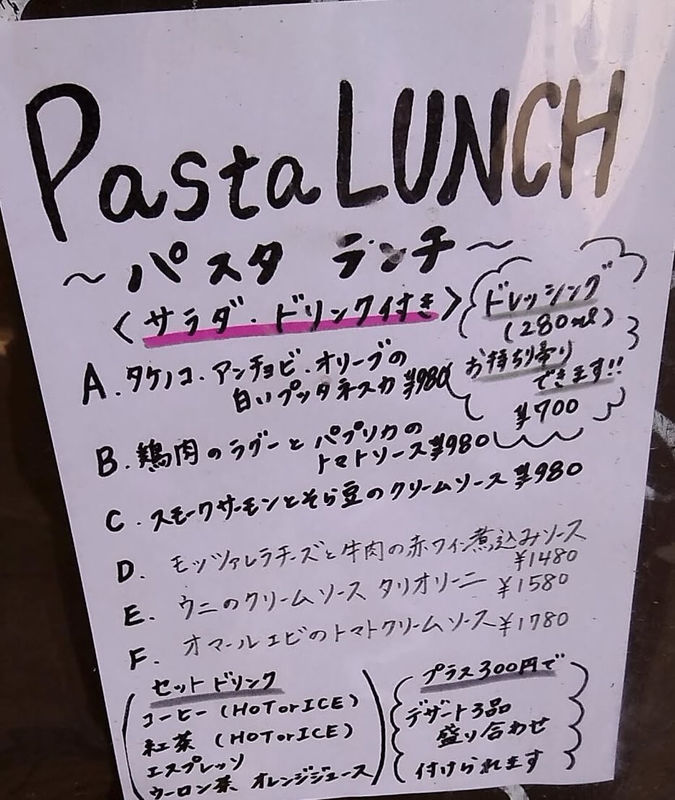 Pasta LUNCH
～パスタ ランチ～
〈サラダ・ドリンク付き〉
ドレッシング
(280ml)
お持ち帰り
できます!!
¥700
A. タケノコ・アンチョビ・オリーブの
白いプッタネスカ ¥980
B. 鶏肉のラグーとパプリカの
トマトソース ¥980
C. スモークサーモンとそら豆のクリームソース ¥980
D. モッツァレラチーズと牛肉の赤ワイン煮込みソース
¥1480
E. ウニのクリームソース タリオリーニ ¥1580
F. オマールエビのトマトクリームソース ¥1780
セットドリンク
コーヒー (HOTorICE)
紅茶 (HOTorICE)
エスプレッソ
ウーロン茶 オレンジジュース
プラス300円で
デザート3品
盛り合わせ
付けられます